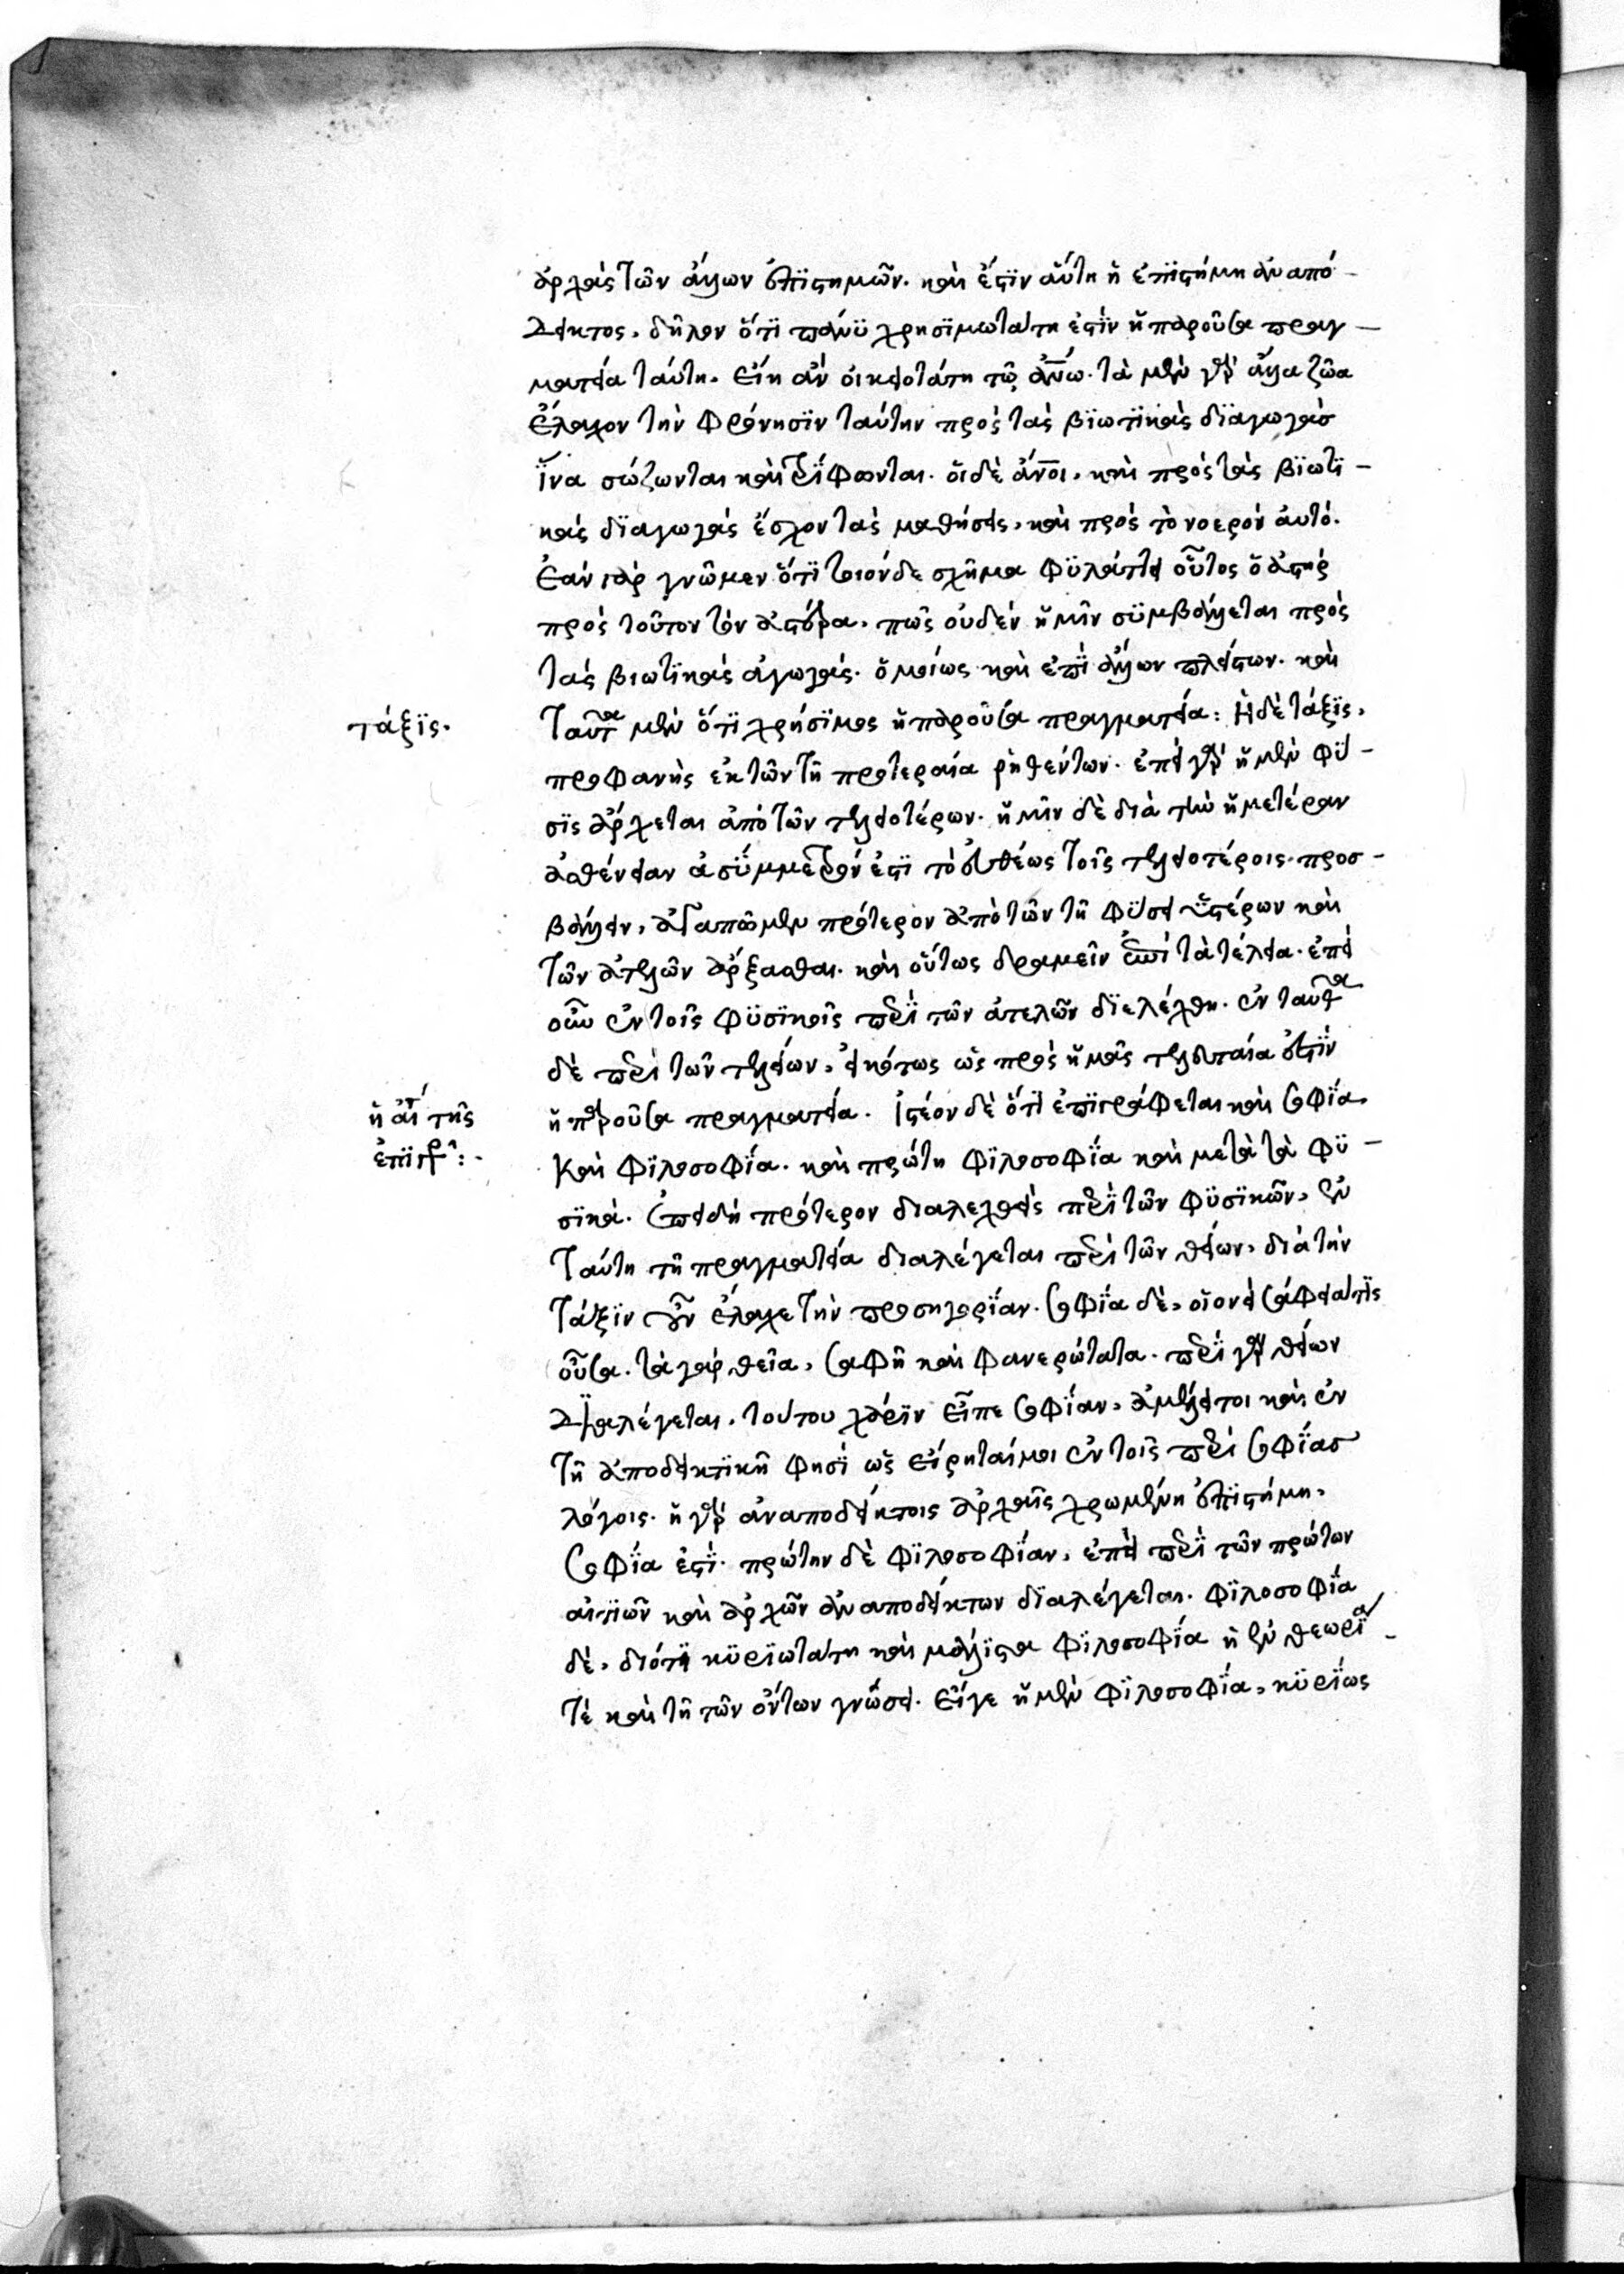 ἀρχὰς τῶν ἄλλων ἐπιστημῶν. καὶ ἔστιν αὕτη ἡ ἐπιστήμη ἀναπό-
δεικτος, δῆλον ὅτι πάνυ χρησιμωτάτη ἐστὶν ἡ παροῦσα πραγ-
ματεία ταύτη. εἴη ἂν οἰκειοτάτη τῷ ἀνω. τὰ μὲν γὰρ ἄλλα ζῶα
ἔλαχον τὴν φρόνησιν ταύτην πρὸς τὰς βιωτικὰς διαγωγάσ
ἵνα σώζωνται καὶ τρέφωνται. οἱ δὲ ἄνοι, καὶ πρὸς τὰς βιωτι-
κὰς διαγωγὰς ἔσχον τὰς μαθήσεις, καὶ πρὸς τὸ νοερὸν αὐτό.
ἐὰν γὰρ γνῶμεν ὅτι τοιόνδε σχῆμα φυλάττει οὗτος ὁ ἀστὴρ
πρὸς τοῦτον τὸν ἀστέρα, πῶς οὐδὲν ἡμῖν συμβάλλεται πρὸς
τὰς βιωτικὰς ἀγωγάς. ὁμοίως καὶ ἐπὶ ἄλλων πλείστων. καὶ
τάξις.
ταῦτα μὲν ὅτι χρήσιμος ἡ παροῦσα πραγματεία: Ἡ δὲ τάξις,
προφανὴς ἐκ τῶν τῆ προτεραία ῥηθέντων. ἐπεὶ γὰρ ἡ μὲν φύ-
σις ἄρχεται ἀπὸ τῶν τελειοτέρων. ἡμῖν δὲ διὰ τὴν ἡμετέραν
ἀσθένειαν ἀσύμμετρόν ἐστι τὸ εὐθέως τοῖς τελειοτέροις προσ-
βάλλειν, ἀγαπῶμεν πρότερον ἀπὸ τῶν τῆ φύσει ὑστέρων καὶ
τῶν ἀτελῶν ἄρξασθαι. καὶ οὕτως δραμεῖν ἐπὶ τὰ τέλεια. ἐπεὶ
οὖν ἐν τοῖς φυσικοῖς περὶ τῶν ἀτελῶν διελέχθη. ἐν ταῦθα
δὲ περὶ τῶν τελείων, εἰκότως ὡς πρὸς ἡμᾶς τελευταία ἐστὶν
ἡ αἰτ τῆς
ἐπιγρ:.
ἡ παροῦσα πραγματεία. Ἰστέον δὲ ὅτι ἐπιγράφεται καὶ σοφία,
καὶ φιλοσοφία. καὶ πρώτη φιλοσοφία καὶ μετὰ τὰ φυ-
σικά. ἐπειδὴ πρότερον διαλεχθεὶς περὶ τῶν φυσικῶν, ἐν
ταύτη τῆ πραγματεία διαλέγεται περὶ τῶν θείων, διὰ τὴν
τάξιν οὖν ἔλαχε τὴν προσηγορίαν. σοφία δὲ, οἱονεὶ σάφειά τις
οὖσα. τὰ γὰρ θεῖα, σαφῆ καὶ φανερώτατα. περὶ γὰρ θείων
διαλέγεται. τούτου χάριν εἶπε σοφίαν, ἀμέλειτοι καὶ ἐν
τῆ ἀποδεικτικῆ φησὶ ὡς εἴρηταί μοι ἐν τοῖς περὶ σοφίασ
λόγοις. ἡ γὰρ ἀναποδείκτοις ἀρχαῖς χρωμένη ἐπιστήμη,
σοφία ἐστί. πρώτην δὲ φιλοσοφίαν, ἐπεὶ περὶ τῶν πρώτων
αἰτιῶν καὶ ἀρχῶν ἀναποδείκτων διαλέγεται. φιλοσοφία
δὲ, διότι κυριωτάτη καὶ μάλιστα φιλοσοφία ἡ ἐν θεωρία
τὲ καὶ τῆ τῶν ὄντων γνώσει. εἴγε ἡ μὲν φιλοσοφία, κυρίως